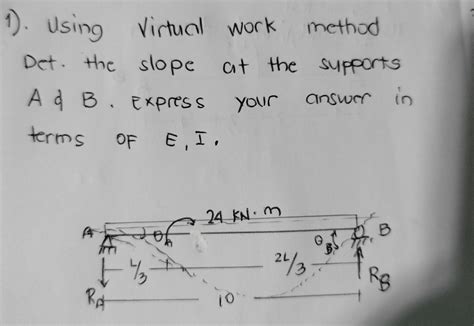 1). Using Virtual work method
Det. the slope at the supports
A & B. Express your answer in
terms OF E, I.
24 KN·m
A θA θB B
L/3 2L/3
RA 10 RB